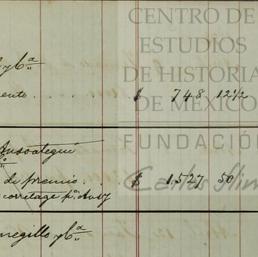 CENTRO DE
ESTUDIOS
DE HISTORIA
DE MÉXICO
y Cª
ente . . . . $ 748 12½
FUNDACIÓN
Carlos Slim
de premio $ 1,527 50
corretage pr
negillo y Cª